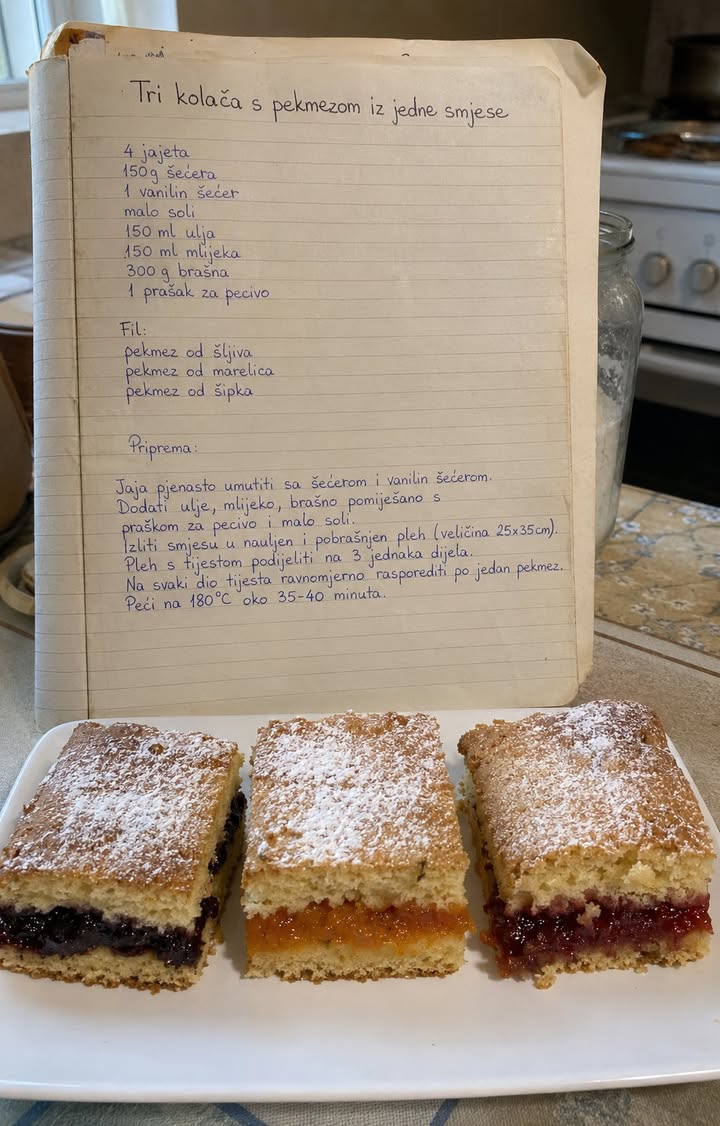 Tri kolača s pekmezom iz jedne smjese
4 jajeta
150g šećera
1 vanilin šećer
malo soli
150 ml ulja
150 ml mlijeka
300 g brašna
1 prašak za pecivo
Fil:
pekmez od šljiva
pekmez od marelica
pekmez od šipka
Priprema:
Jaja pjenasto umutiti sa šećerom i vanilin šećerom.
Dodati ulje, mlijeko, brašno pomiješano s
praškom za pecivo i malo soli.
Izliti smjesu u nauljen i pobrašnjen pleh (veličina 25x35cm).
Pleh s tijestom podijeliti na 3 jednaka dijela.
Na svaki dio tijesta ravnomjerno rasporediti po jedan pekmez.
Peći na 180°C oko 35-40 minuta.